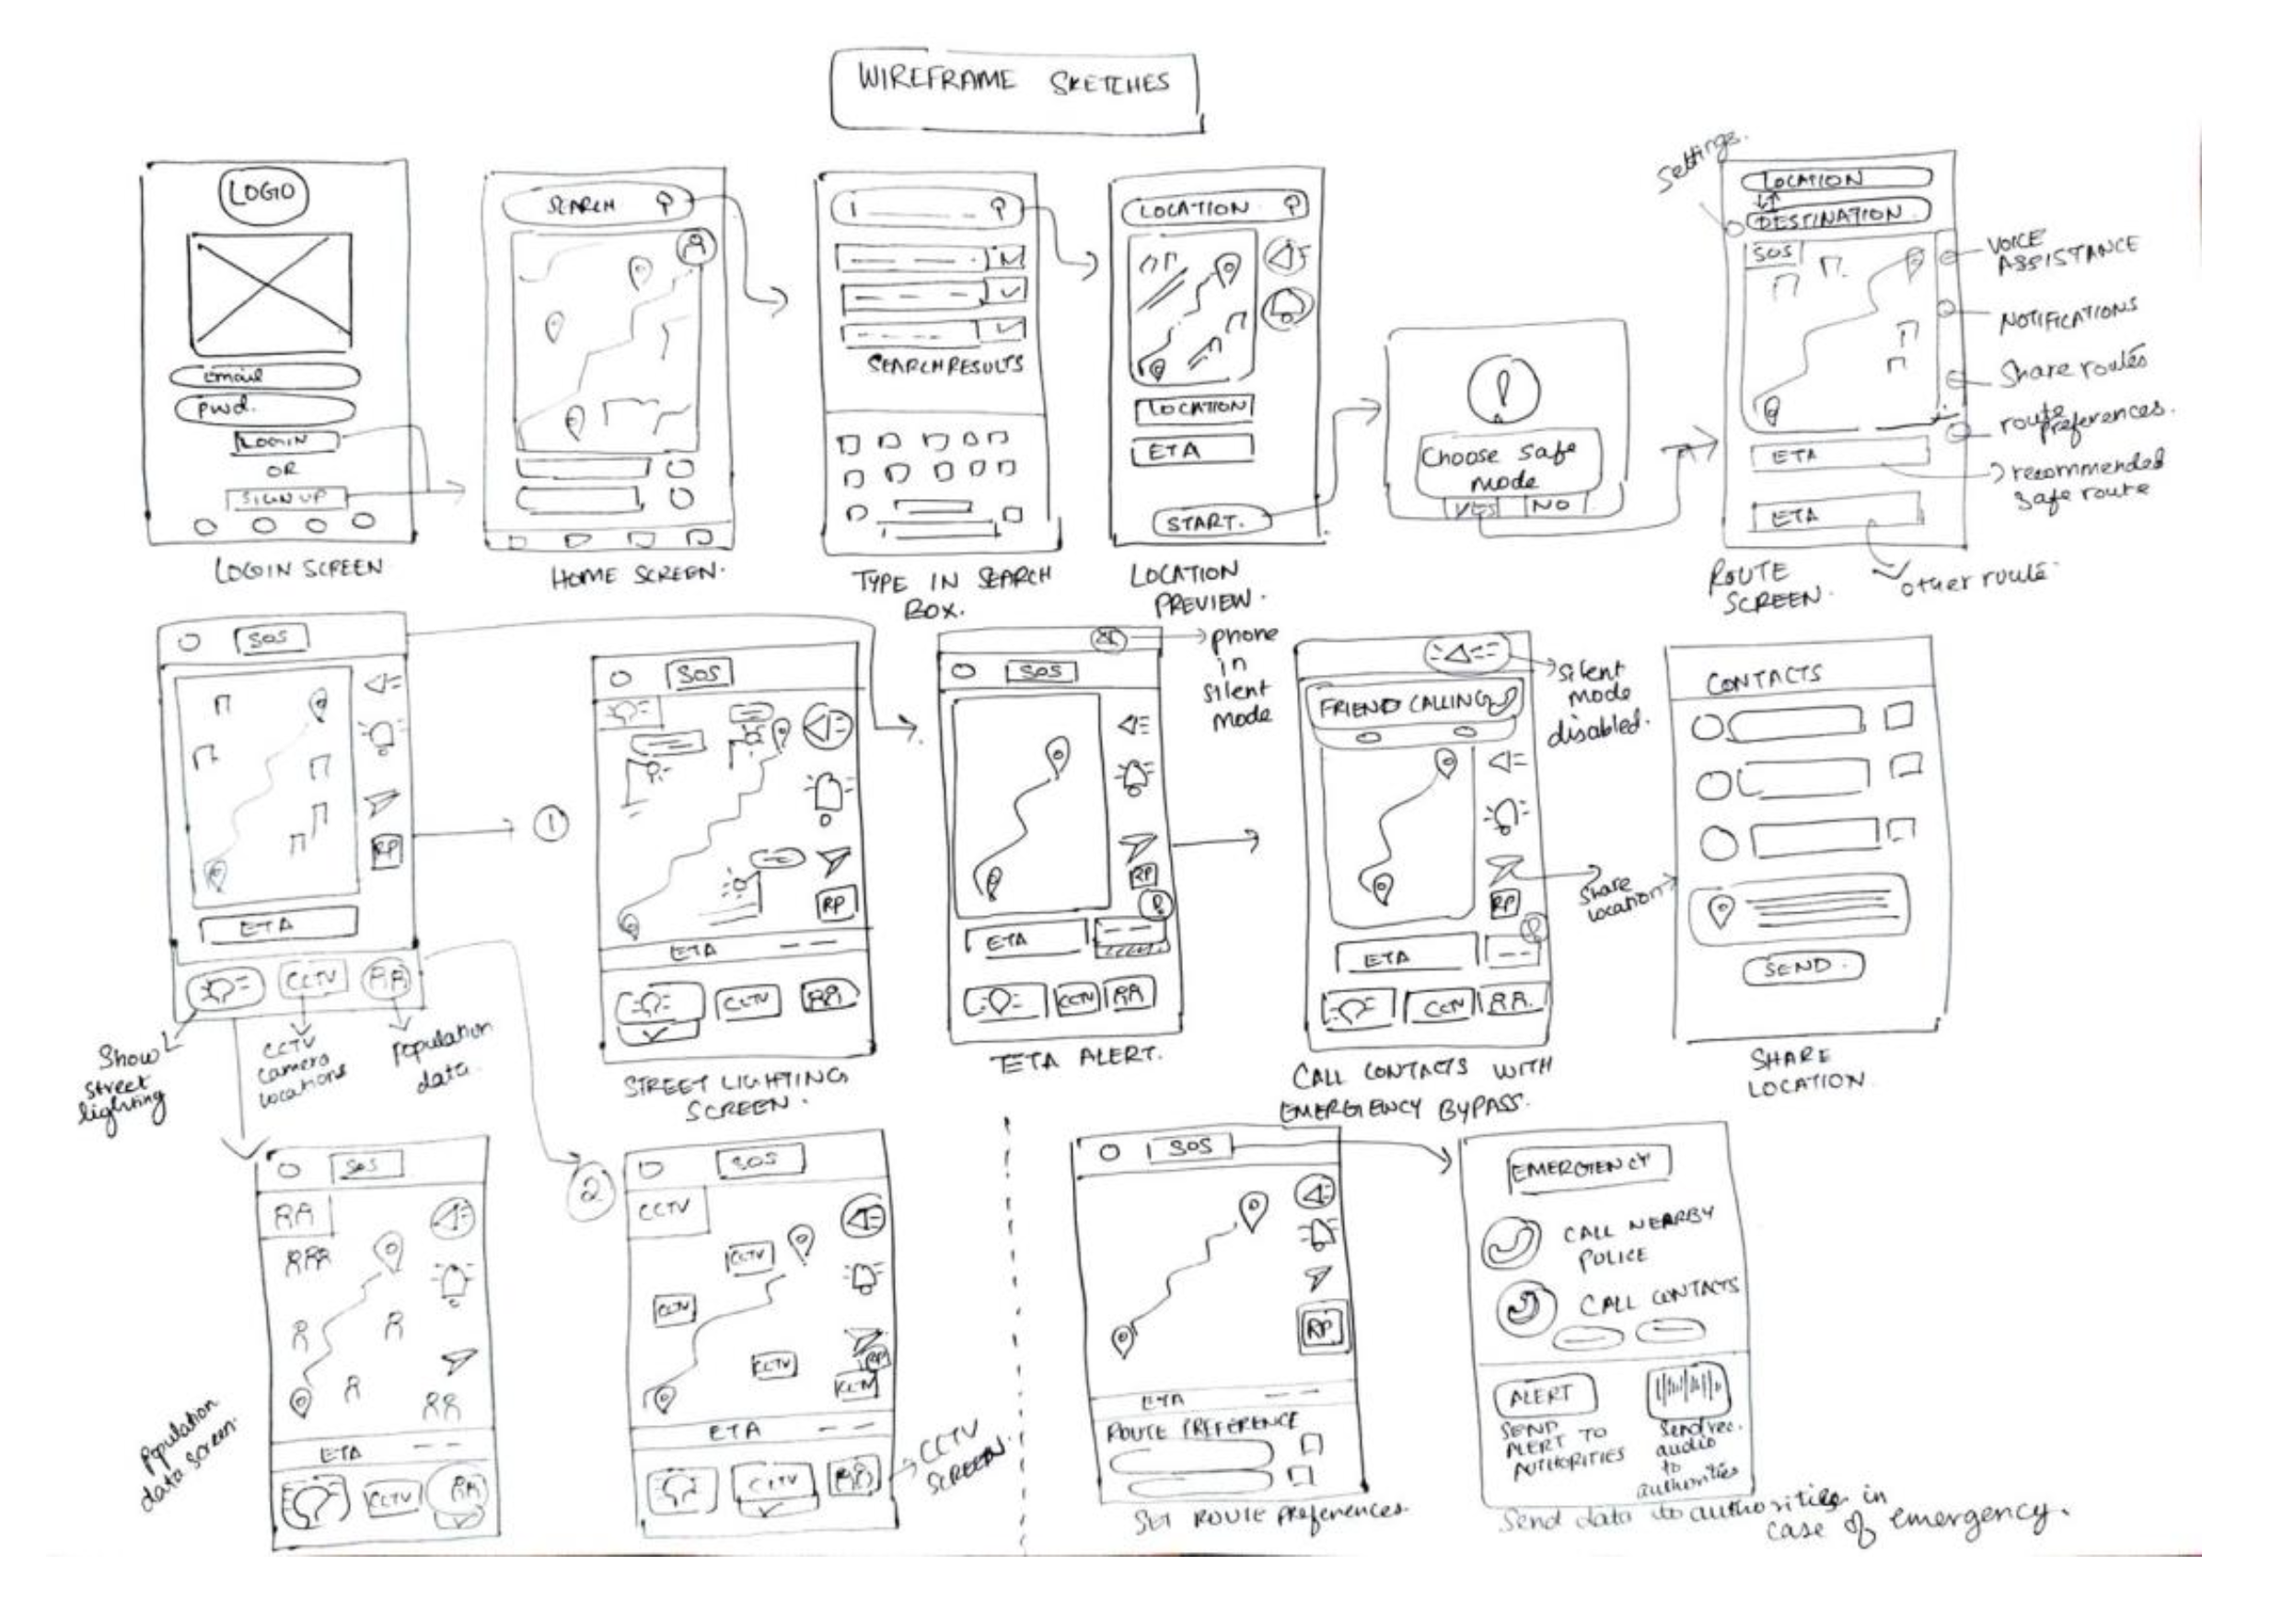 WIREFRAME SKETCHES
LOGO
Email
Pwd.
LOGIN
OR
SIGN UP
LOGIN SCREEN
SEARCH
HOME SCREEN.
SEARCH RESULTS
TYPE IN SEARCH
BOX.
LOCATION
LOCATION
ETA
START.
LOCATION
PREVIEW.
!
Choose safe
mode
YES
NO
Settings.
LOCATION
DESTINATION
SOS
VOICE
ASSISTANCE
NOTIFICATIONS
Share routes
route
preferences.
ETA
recommended
safe route
ETA
other route
ROUTE
SCREEN.
SOS
RP
ETA
CCTV
Show
street
lighting
CCTV
camera
locations
Population
data.
1
SOS
RP
ETA
CCTV
STREET LIGHTING
SCREEN.
phone
in
silent
mode
SOS
RP
ETA
CCTV
ETA ALERT.
silent
mode
disabled.
FRIEND CALLING
RP
ETA
CCTV
CALL CONTACTS WITH
EMERGENCY BYPASS.
Share
location
CONTACTS
SEND.
SHARE
LOCATION
SOS
ETA
CCTV
Population
data screen.
2
SOS
CCTV
CCTV
CCTV
CCTV
RP
ETA
CCTV
CCTV
SCREEN.
SOS
RP
ETA
ROUTE PREFERENCE
SET ROUTE preferences.
EMERGENCY
CALL NEARBY
POLICE
CALL CONTACTS
ALERT
SEND
ALERT TO
AUTHORITIES
Send rec.
audio
to
authorities
Send data to authorities in
case of emergency.